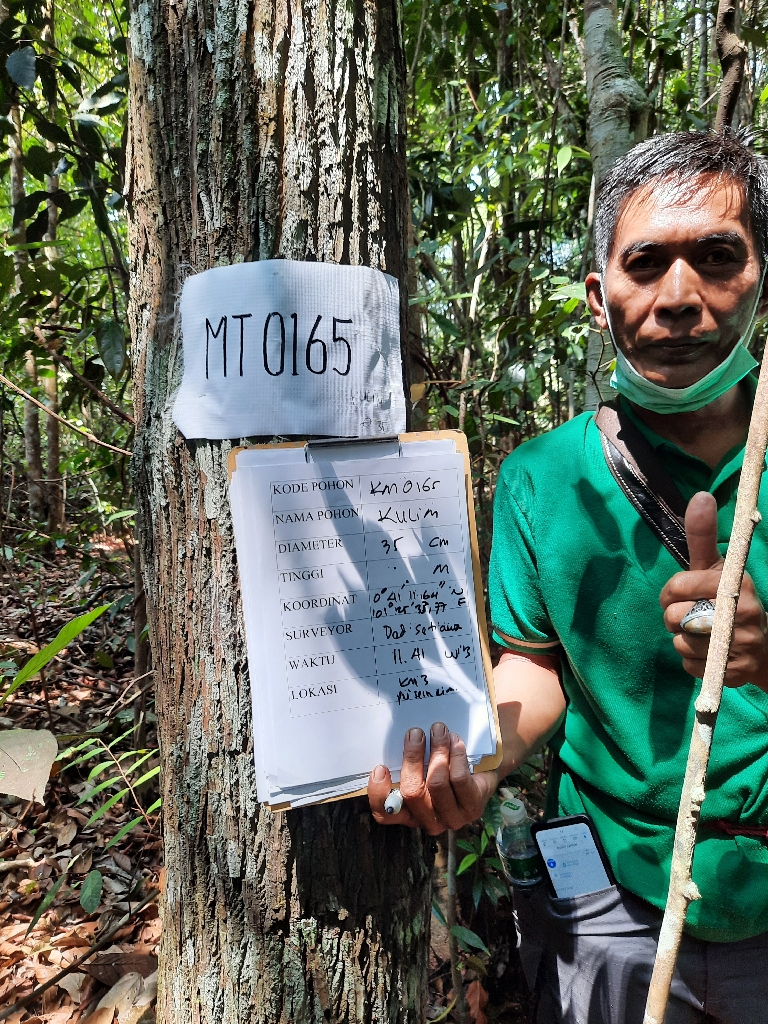 MT0165
KODE POHON KM 0165
NAMA POHON KULIM
DIAMETER 35 CM
TINGGI M
KOORDINAT 0° 41' 11.164" N
E
SURVEYOR Dadi Setiawa
WAKTU 11.41 WIB
LOKASI KM3